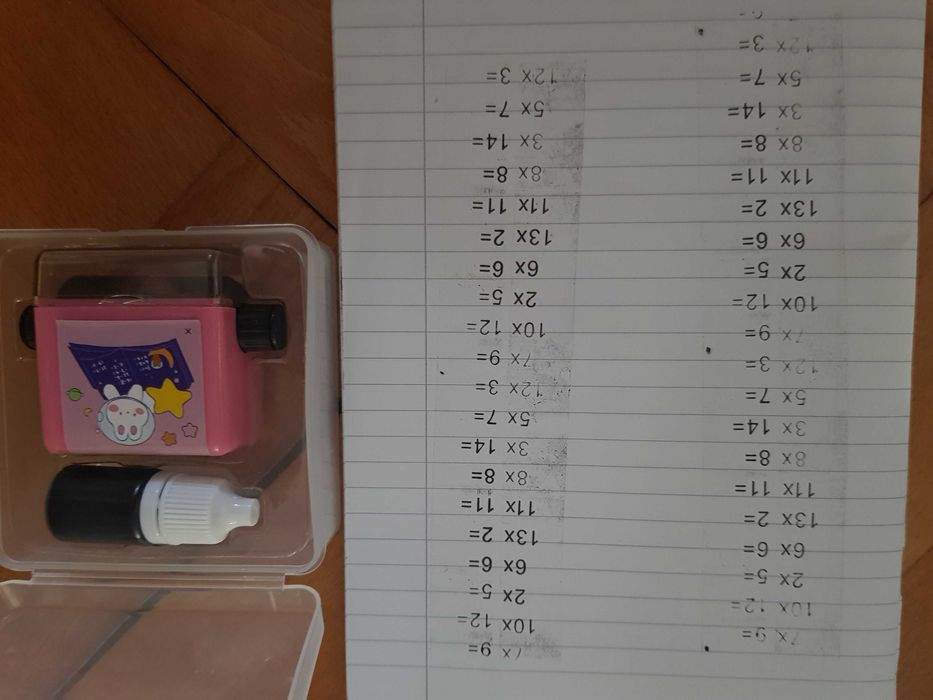 7x 9=
10x 12=
2x 5=
6x 6=
13x 2=
11x 11=
8x 8=
3x 14=
5x 7=
12x 3=
7x 9=
10x 12=
2x 5=
6x 6=
13x 2=
11x 11=
8x 8=
3x 14=
5x 7=
12x 3=
7x 9=
10x 12=
2x 5=
6x 6=
13x 2=
11x 11=
8x 8=
3x 14=
5x 7=
12x 3=
7x 9=
10x 12=
2x 5=
6x 6=
13x 2=
11x 11=
8x 8=
3x 14=
5x 7=
12x 3=